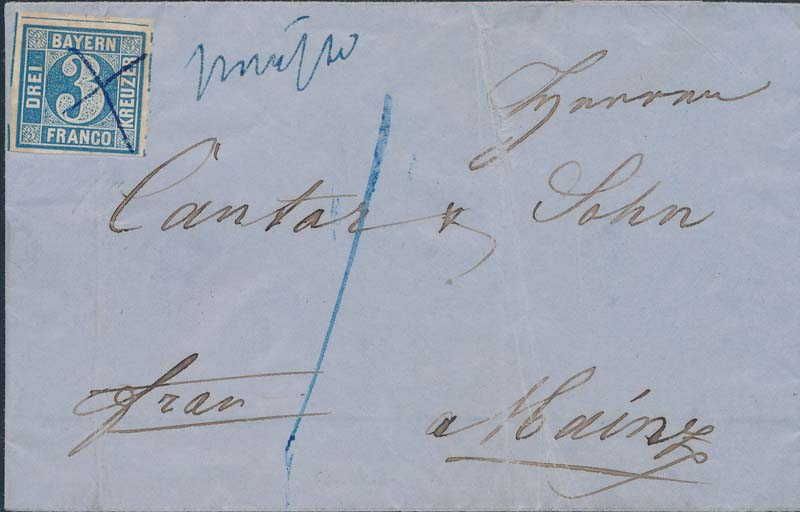 BAYERN
DREI 3 KREUZER
FRANCO
Herren
Cantor & Sohn
fran
a Mainz